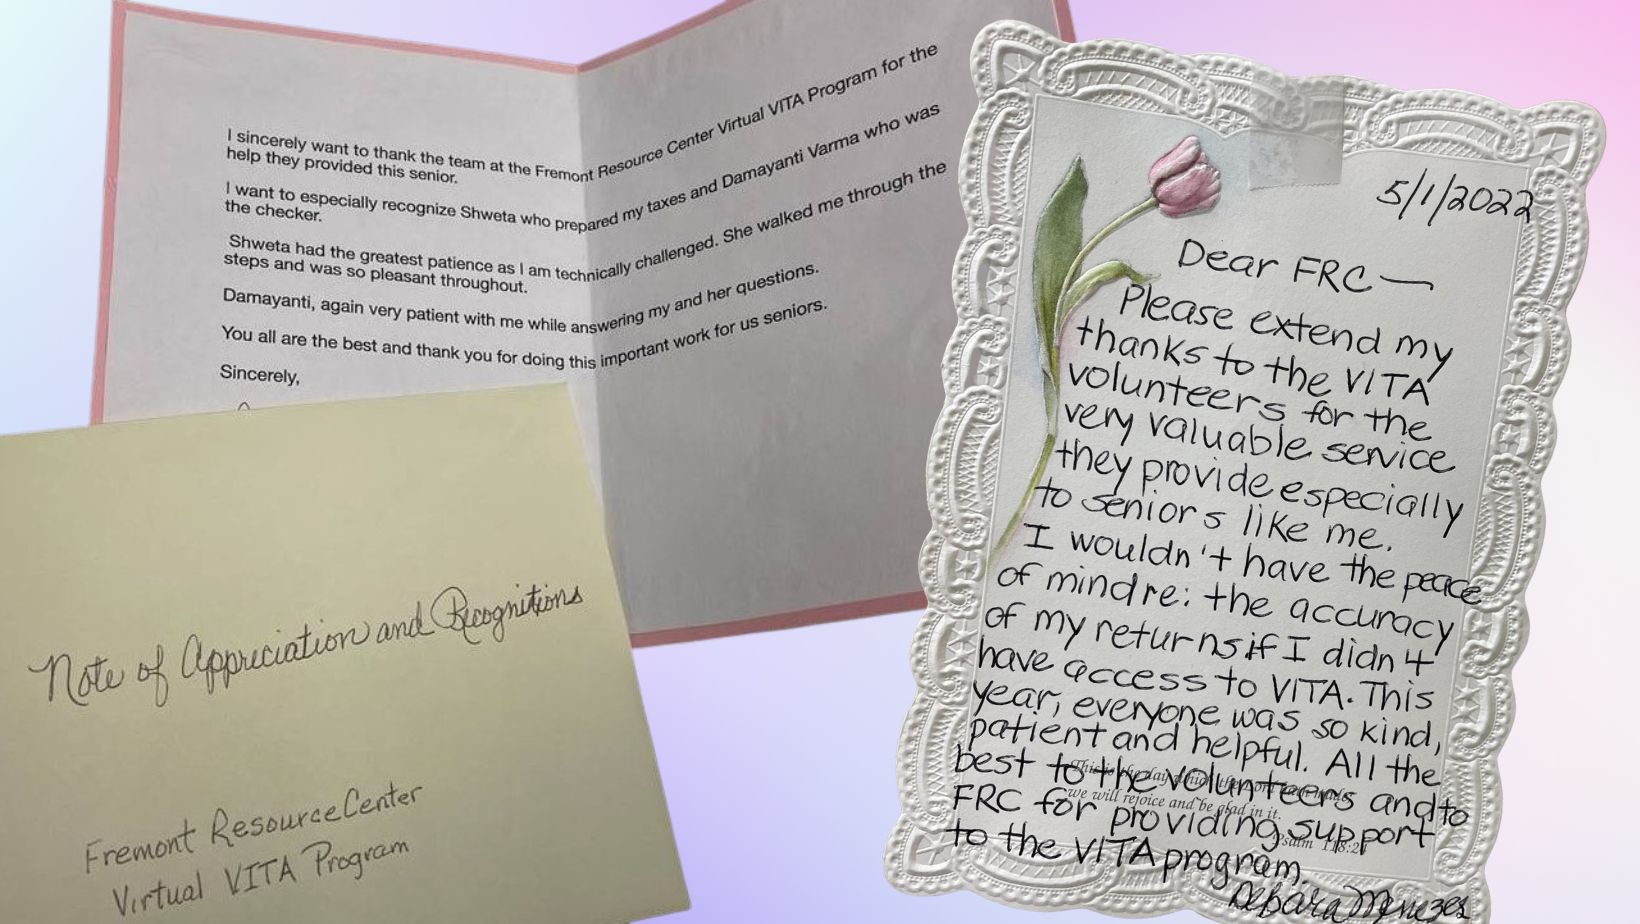 I sincerely want to thank the team at the Fremont Resource Center Virtual VITA Program for the
help they provided this senior.
I want to especially recognize Shweta who prepared my taxes and Damayanti Varma who was
the checker.
Shweta had the greatest patience as I am technically challenged. She walked me through the
steps and was so pleasant throughout.
Damayanti, again very patient with me while answering my and her questions.
You all are the best and thank you for doing this important work for us seniors.
Sincerely,
Note of Appreciation and Recognitions
Fremont Resource Center
Virtual VITA Program
5/1/2022
Dear FRC —
Please extend my
thanks to the VITA
volunteers for the
very valuable service
they provide especially
to seniors like me.
I wouldn't have the peace
of mind re: the accuracy
of my returns if I didn't
have access to VITA. This
year, everyone was so kind,
patient and helpful. All the
best to the volunteers and to
This is the day which the Lord
we will rejoice and be glad in it.
FRC for providing support
Psalm 118:2
to the VITA program.
Debara Menezes